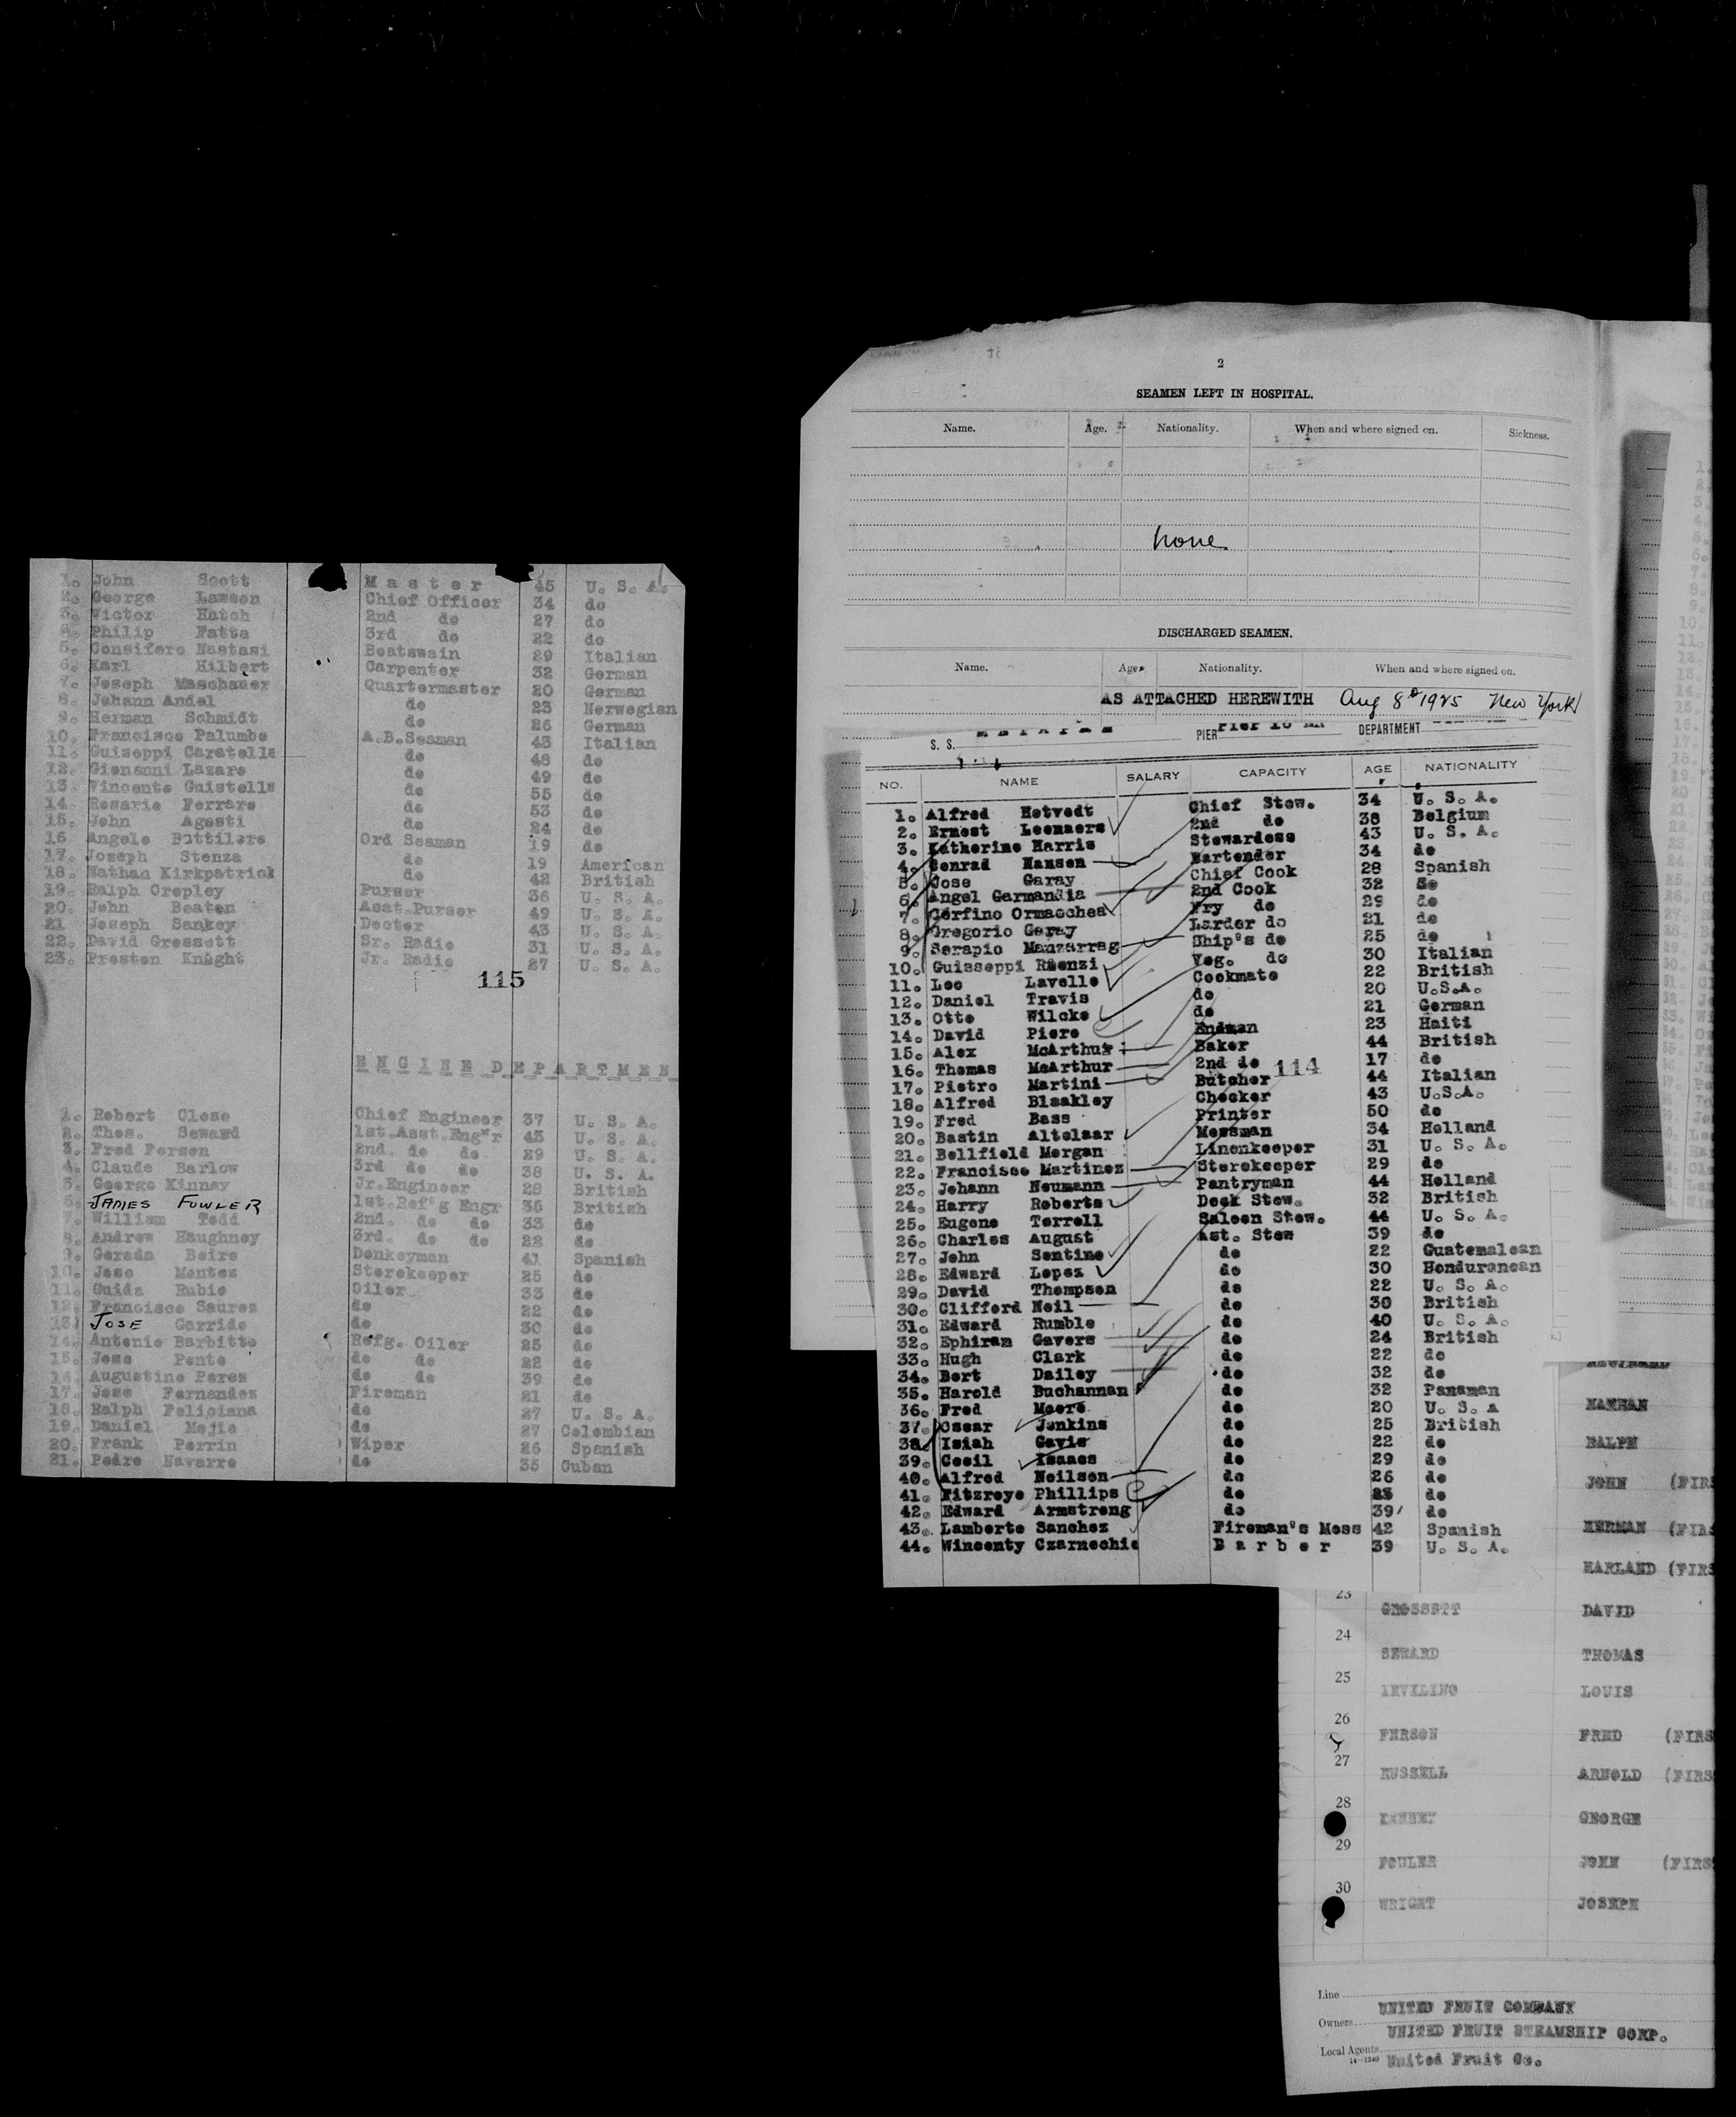 1. John Scott Master 45 U. S. A.
2. George Lawson Chief Officer 34 do
3. Victor Hatch 2nd do 27 do
4. Philip Fatta 3rd do 22 do
5. Consifero Nastasi Boatswain 29 Italian
6. Karl Hilbert Carpenter 32 German
7. Joseph Maschauer Quartermaster 20 German
8. Johann Andel do 23 Norwegian
9. Herman Schmidt do 26 German
10. Francisco Palumbo A.B.Seaman 43 Italian
11. Guiseppi Caratella do 48 do
12. Gionanni Lazaro do 49 do
13. Vincente Guistella do 55 do
14. Rosario Ferraro do 53 do
15. John Agosti do 24 do
16 Angelo Buttilere Ord Seaman 19 do
17. Joseph Stenza do 19 American
18. Nathan Kirkpatrick do 42 British
19. Ralph Cropley Purser 36 U. S. A.
20. John Beaton Asst.Purser 49 U. S. A.
21 Joseph Sankey Docter 43 U. S. A.
22. David Grossett Sr. Radio 31 U. S. A.
23. Preston Knight Jr. Radio 27 U. S. A.
115
ENGINE DEPARTMEN
1. Robert Close Chief Engineer 37 U. S. A.
2. Thos. Seward 1st.Asst.Eng'r 43 U. S. A.
3. Fred Ferson 2nd. do do 29 U. S. A.
4. Claude Barlow 3rd do do 38 U. S. A.
5. George Kinney Jr.Engineer 28 British
6. JAMES FOWLER 1st.Ref'g Engr 35 British
7. William Todd 2nd. do do 33 do
8. Andrew Haughney 3rd. do do 22 do
9. Gerada Beiro Donkeyman 41 Spanish
10. Jose Montez Storekeeper 25 do
11. Guida Rubio Oiler 33 do
12. Francisco Saurez do 22 do
13. JOSE Garrido do 30 do
14. Antonio Barbitto Refg. Oiler 25 do
15. Jose Ponte do do 22 do
16. Augustine Peres do do 39 do
17. Jose Fernandez Fireman 21 do
18. Ralph Feliciana do 27 U. S. A.
19. Daniel Mejie do 27 Colombian
20. Frank Perrin Wiper 26 Spanish
21. Pedro Navarro do 35 Cuban
2
SEAMEN LEFT IN HOSPITAL.
Name. Age. Nationality. When and where signed on. Sickness.
None
DISCHARGED SEAMEN.
Name. Age. Nationality. When and where signed on.
AS ATTACHED HEREWITH Aug 8th 1925 New York
S. S. PIER DEPARTMENT
NO. NAME SALARY CAPACITY AGE NATIONALITY
1. Alfred Hetvedt Chief Stew. 34 U. S. A.
2. Ernest Leemaers 2nd do 38 Belgium
3. Katherine Harris Stewardess 43 U. S. A.
4. Conrad Hansen Bartender 34 do
5. Jose Garay Chief Cook 28 Spanish
6. Angel Garmandia 2nd Cook 32 do
7. Corfino Ormaechea Fry do 29 do
8. Gregorio Garay Larder do 21 do
9. Serapio Manzarrag Ship's do 25 do
10. Guisseppi Rienzi Veg. do 30 Italian
11. Leo Lavelle Cookmate 22 British
12. Daniel Travis do 20 U.S.A.
13. Otto Wilcke do 21 German
14. David Piere Endman 23 Haiti
15. Alex McArthur Baker 44 British
16. Thomas McArthur 2nd do 17 do
17. Pietro Martini Butcher 44 Italian
114
18. Alfred Blaakley Checker 43 U.S.A.
19. Fred Bass Printer 50 do
20. Bastin Altelaar Messman 34 Holland
21. Bellfield Morgan Linenkeeper 31 U. S. A.
22. Francisco Martinez Storekeeper 29 do
23. Johann Neumann Pantryman 44 Holland
24. Harry Roberts Deck Stew. 32 British
25. Eugene Terrell Saloon Stew. 44 U. S. A.
26. Charles August Ast. Stew 39 do
27. John Sentine do 22 Guatemalean
28. Edward Lopez do 30 Honduranean
29. David Thompson do 22 U. S. A.
30. Clifford Neil do 30 British
31. Edward Rumble do 40 U. S. A.
32. Ephiram Gavers do 24 British
33. Hugh Clark do 22 do
34. Bert Dailey do 32 do
35. Harold Buchannan do 32 Panaman
36. Fred Moore do 20 U. S. A
37. Oscar Jenkins do 25 British
38. Isiah Gavis do 22 do
39. Cecil Isaacs do 29 do
40. Alfred Neilson do 26 do
41. Fitzroye Phillips do 23 do
42. Edward Armstrong do 39 do
43. Lamberto Sanchez Fireman's Mess 42 Spanish
44. Wincenty Czarnechie Barber 39 U. S. A.
NATHAN
RALPH
JOHN (FIRS
HERMAN (FIRS
HARLAND (FIRS
23 GROSSETT DAVID
24 SEWARD THOMAS
25 LOUIS
26 FERSON FRED (FIRS
27 RUSSELL ARNOLD (FIRS
28 KENNEY GEORGE
29 FOWLER JOHN (FIRS
30 WRIGHT JOSEPH
Line UNITED FRUIT COMPANY
Owners UNITED FRUIT STEAMSHIP CORP.
Local Agents United Fruit Co.
14—1240